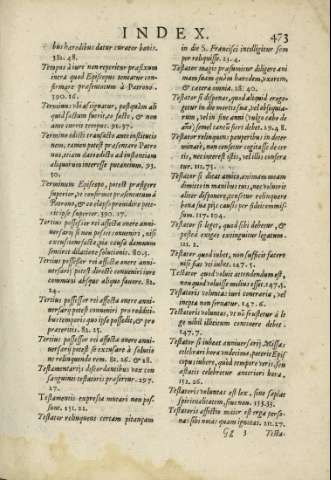 INDEX. 473
bus hæredibus datur curator bonis.
381. 48.
Tempus à iure non reperitur præfixum
intra quod Episcopus teneatur con-
firmare præsentatum à Patrono.
390. 16.
Terminus vbi assignatur, postquàm ali
quid factum fuerit, ex facto, & non
ante currit tempus. 91. 97.
Termino editi transacto ante institutio
nem, tamen potest præsentare Patro
nus, etiam datredicto ad instantiam
aliquarum interesse putantium. 93.
30.
Terminum Episcopo, potest præfigere
Superior, ve confirmet præsentatum à
Patrono, & eo elapso prouidere pote-
rit ipse superior. 390. 17.
Tertius possessor rei affecta onere anni-
uersarij non posset conueniri, nisi
excussione facta, qua causa damnum
sentiret dilatione solutionis. 80. 5.
Tertius possessor rei affecta onere anni-
uersarij potest directè conueniri iure
communi absque aliqua fauore. 81.
24.
Tertius possessor rei affecta onere anni-
uersarij potest conueniri pro redditi-
bus temporis quo ipse possedit, & pro
præteritis. 81. 25.
Tertius possessor rei affecta onere anni-
uersarij potest se excusare à solutio
ne relinquendo rem. 81. 26. & 28.
Testamentarijs discordantibus vox con
sanguinei testatoris præfertur. 297.
27.
Testamentis expressa mutari non pos-
sunt. 131. 22.
Testator relinquens certam pitançam
in die S. Francisci intelligitur sem
per reliquisse. 23. 4.
Testator magis præsumitur diligere ani
mam suam quàm hæredem, vxorem,
& cætera omnia. 28. 40.
Testator si disponat, quod aliquid eroge-
tur in die mortis sua, vel alicuius an-
norum, vel in fine anni (vulgo cabo de
año) semel tantùm fieri debet. 29. 48.
Testator relinquens pauperibus in deter-
minatè, non censetur cogitasse de cer
tis, nec interest istis, vel illis confera
tur. 111. 73.
Testator si dicat amico, animam meam
dimitto in manibus tuis, nec volueris
aliter disponere, tenetur relinquere
bona sua pijs causis per fideicommis-
sum. 117. 104.
Testator si leget, quod sibi debetur, &
postea exiget extinguitur legatum.
121. 2.
Testator quod iubet, non sufficit facere
nisi fiat vti iubet. 147. 3.
Testator quod voluit attendendum est,
non quod voluisse melius esset. 147. 4.
Testatoris voluntas iuri contraria, vel
inepta non seruatur. 147. 6.
Testatoris voluntas, vt no frustretur à le
ge nihil illicitum continere debet.
147. 7.
Testator si iubeat anniuersarij Missas
celebrari hora vndecima, poterit Epis
copus iubere, quod tempore veris, seu
æstatis celebretur anteriori hora.
152. 26.
Testatoris voluntas est lex, siue sapiat
spiritualitatem, siue non. 155. 35.
Testatoris affectio maior est erga perso-
nas sibi notas quam ignotas. 211. 27.
Gg 3 Testa-